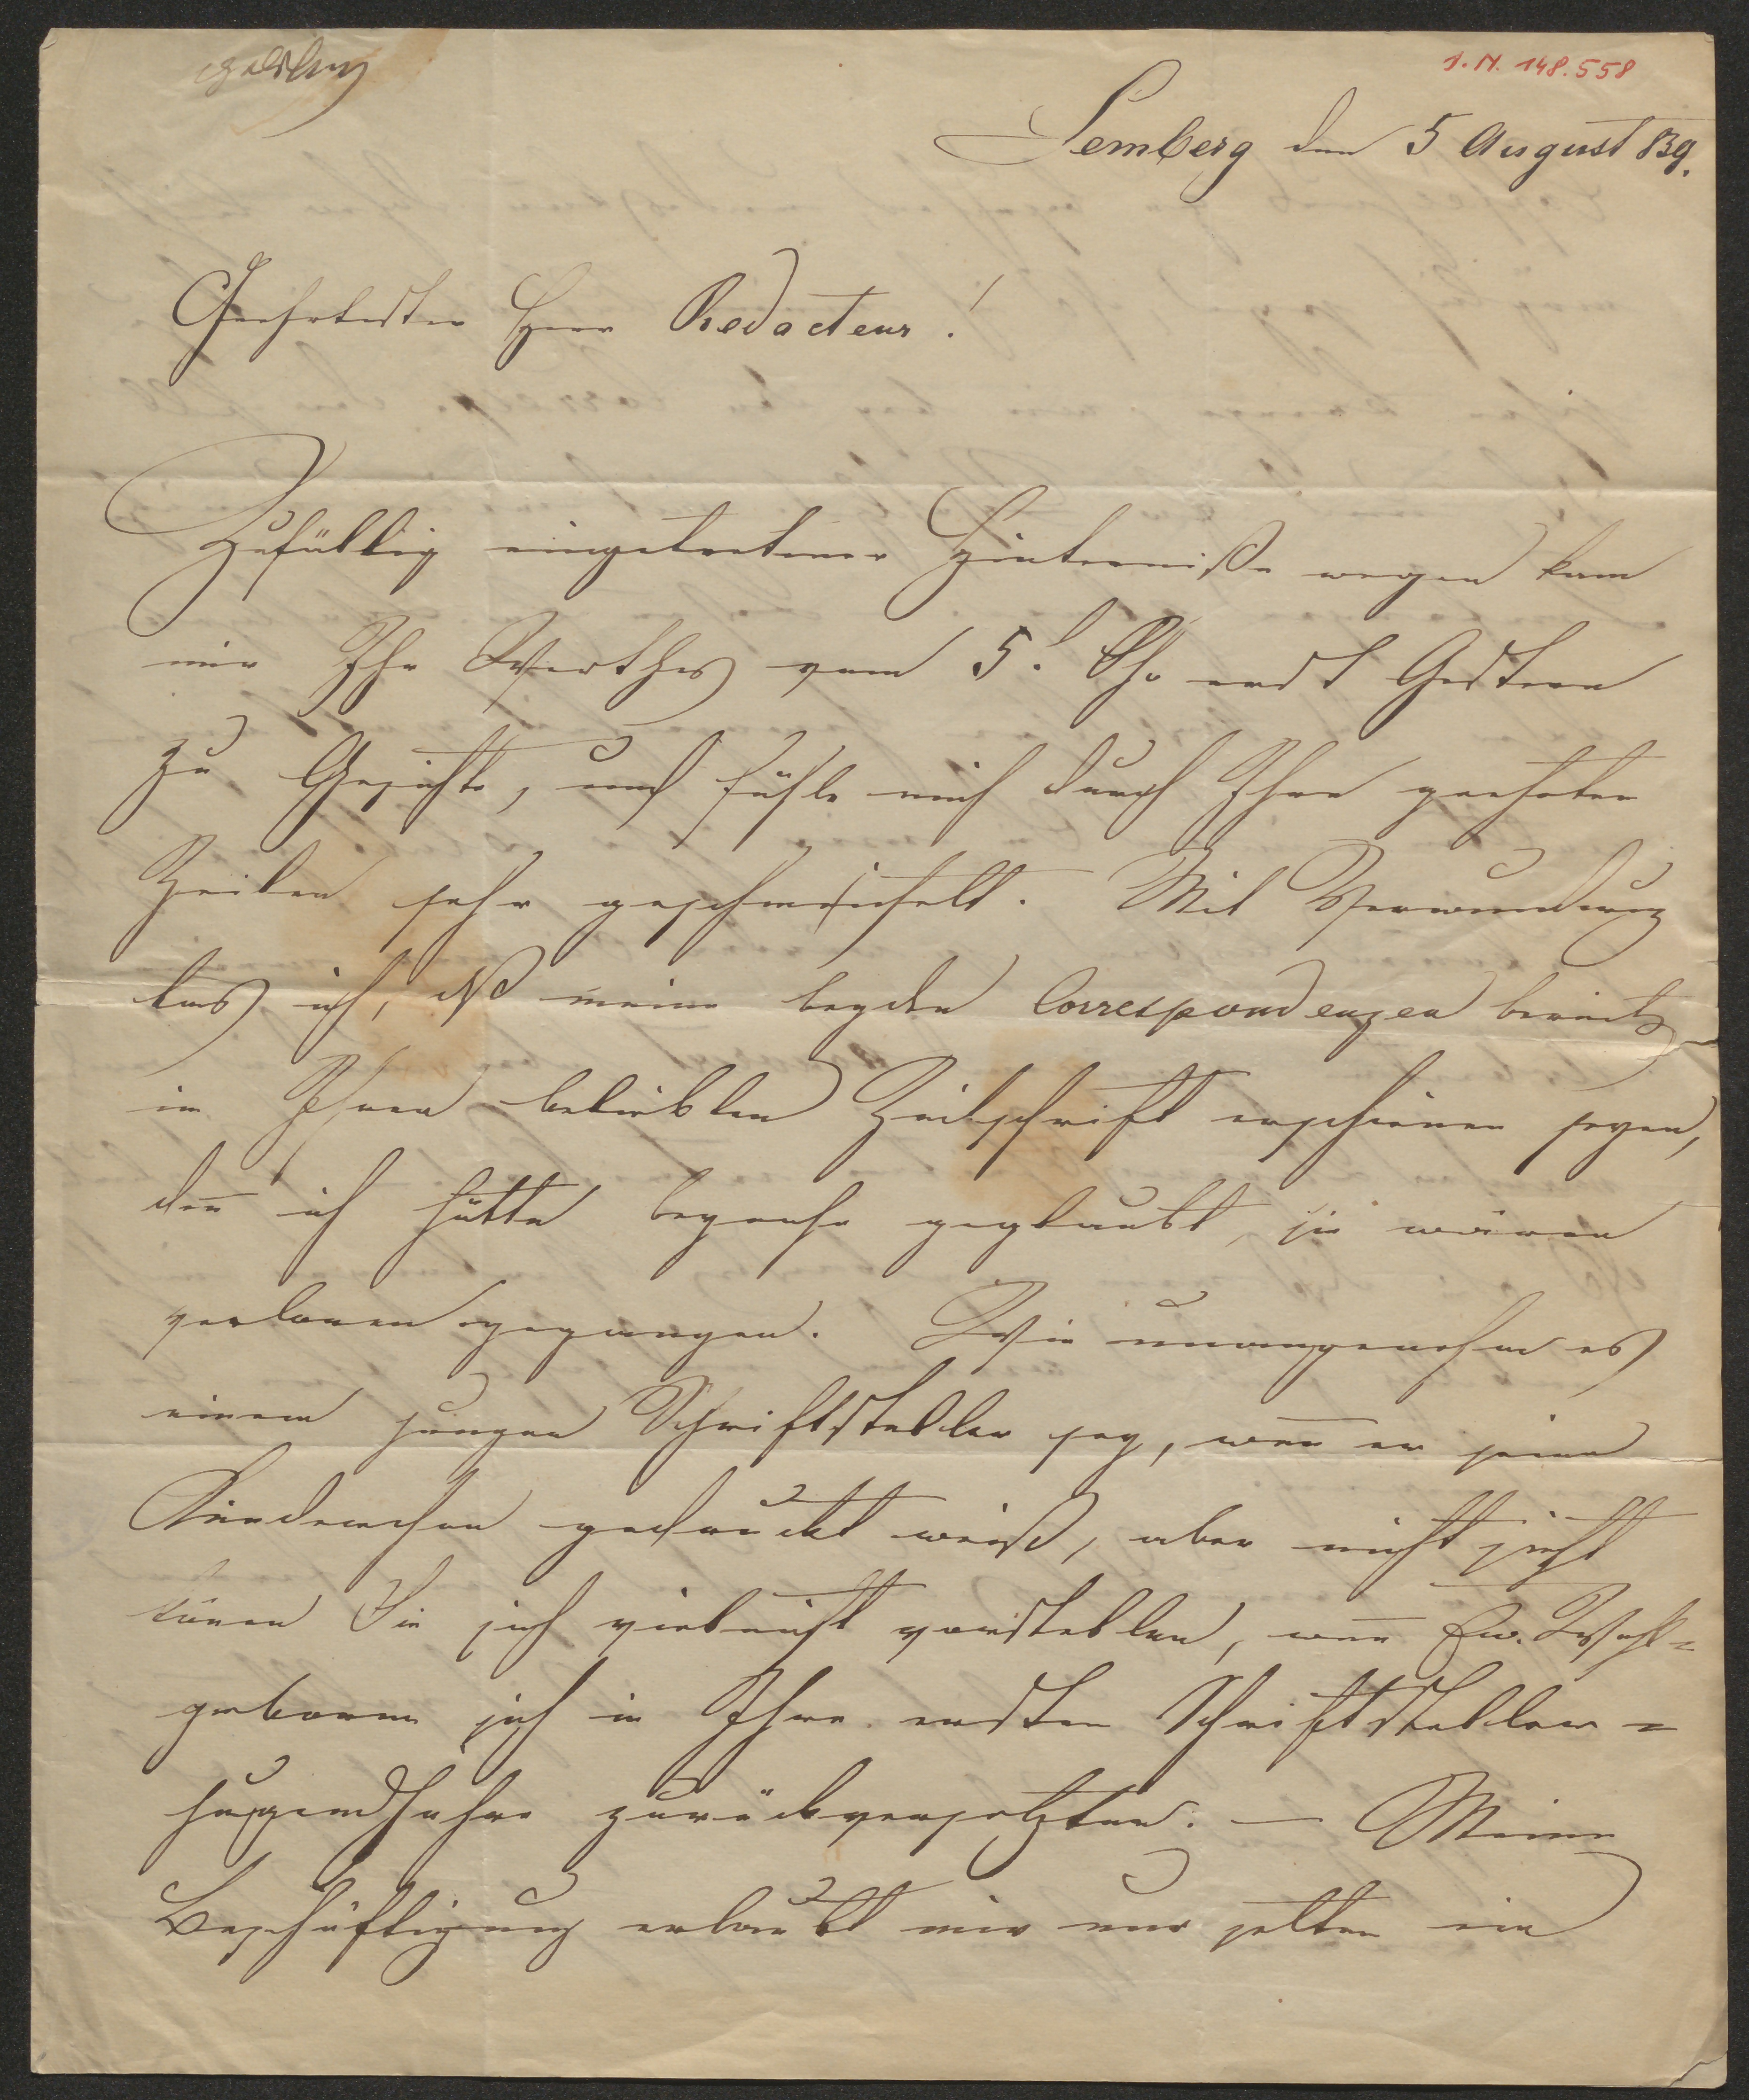 I. N. 148.558
Lemberg den 5 August 839.
Geehrtester Herr Redacteur!
Zufällig eingetretener Hinterniße wegen kam
mir Ihr Werthes vom 5. erst Gestern
zu Gesichte, und fühle mich durch Ihre geehrten
Zeilen sehr geschmeichelt. Mit Verwunderung
las ich, dß meine beyden Correspondenzen bereits
in Ihrer beliebten Zeitschrift erschienen seyen,
den̄ ich hätte beynahe geglaubt, sie wären
verloren gegangen. Wie unangenehm es
einem jungen Schriftsteller sey, wen̄ er seine
Kinderchen gedruckt weiß, aber nicht sieht
kön̄en Sie sich vieleicht vorstellen, wen̄ Ew. Wohl=
geboren sich in Ihre ersten Schriftsteller=
jugendjahre zurückversetzten. — Meine
Beschäftigung erlaubt mir nur selten ein